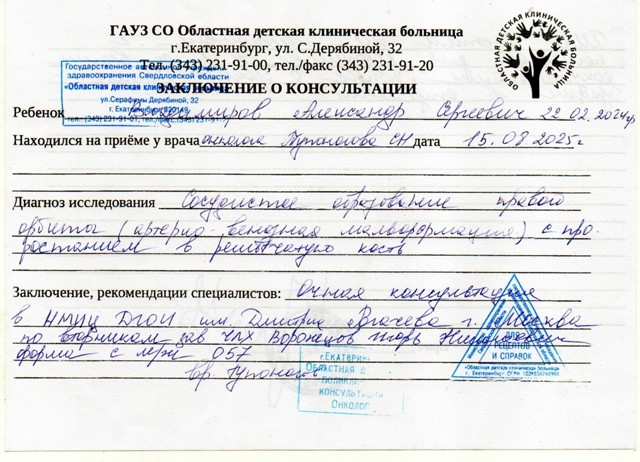 ГАУЗ СО Областная детская клиническая больница
г.Екатеринбург, ул. С.Дерябиной, 32
Тел. (343) 231-91-00, тел./факс (343) 231-91-20
ЗАКЛЮЧЕНИЕ О КОНСУЛЬТАЦИИ
ОБЛАСТНАЯ ДЕТСКАЯ КЛИНИЧЕСКАЯ БОЛЬНИЦА
Государственное автономное учреждение
здравоохранения Свердловской области
«Областная детская клиническая больница»
ул.Серафимы Дерябиной, 32
г. Екатеринбург
тел.: (343) 231-91-07, тел./факс
Ребенок Александр Сергеевич 22 02. 2024гр
Находился на приёме у врача онколога СН дата 15.08 2025г
Диагноз исследования Сосудистое образование правой
орбиты (артерио-венозная мальформация) с про-
растанием в решетчатую кость
Заключение, рекомендации специалистов: Очная консультация
в НМИЦ ДГОИ им. Дмитрия Рогачева г. Москва
по вторникам зав Воронцов Игорь
форма 057
вр.
г.ЕКАТЕРИН
ОБЛАСТНАЯ Д
ПОЛИКЛИ
КОНСУЛЬТАЦИ
ОНКОЛОГ
ДЛЯ
РЕЦЕПТОВ
И СПРАВОК
«Областная детская клиническая больница»
г. Екатеринбург ОГРН